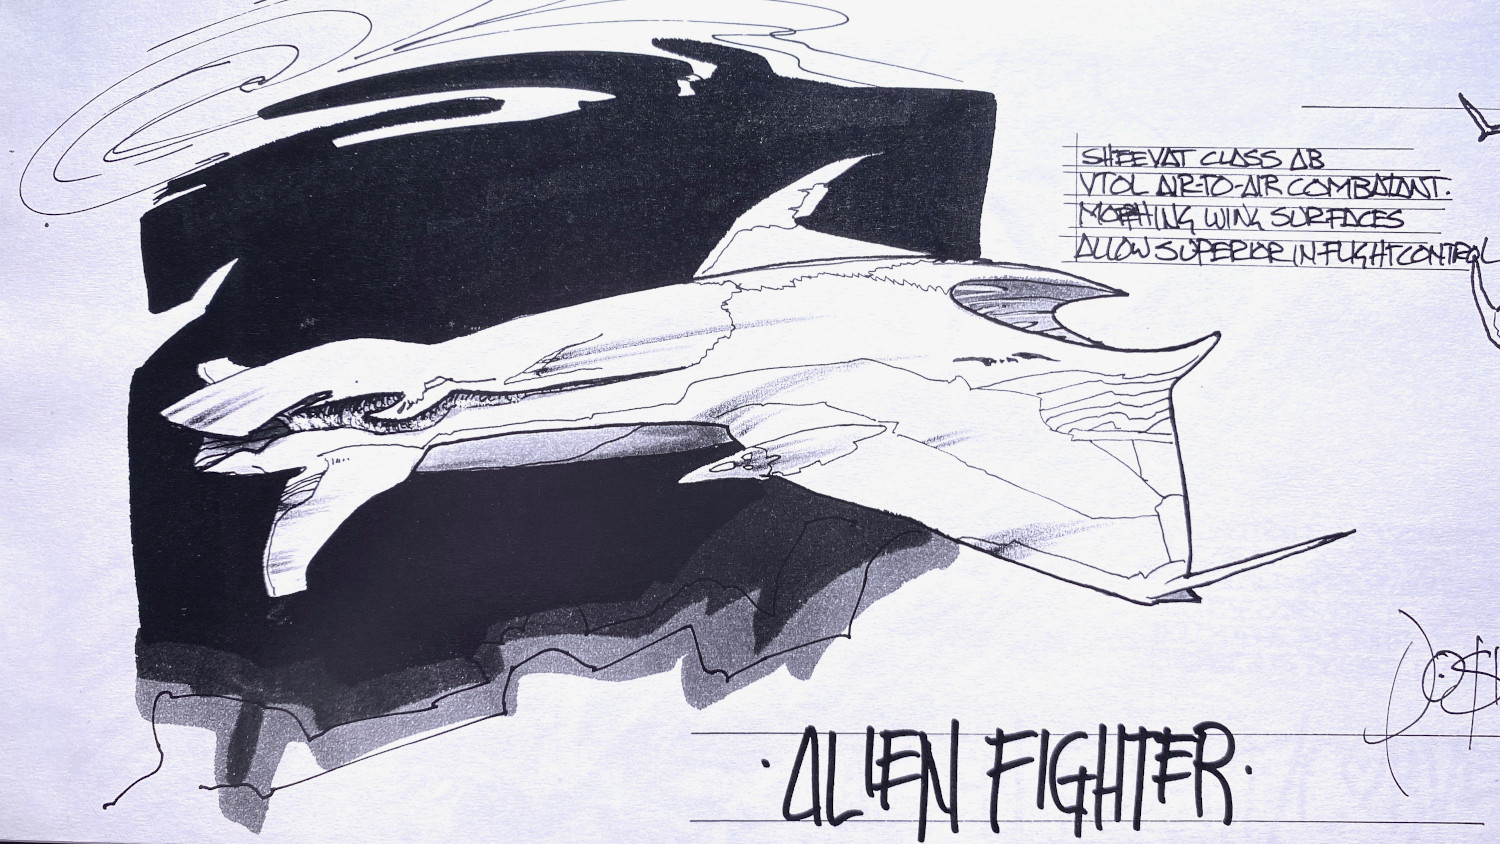 SHEEVAT CLASS AB
VTOL AIR-TO-AIR COMBATANT.
MORPHING WING SURFACES
ALLOW SUPERIOR IN-FLIGHT CONTROL
JOSH
· ALIEN FIGHTER ·